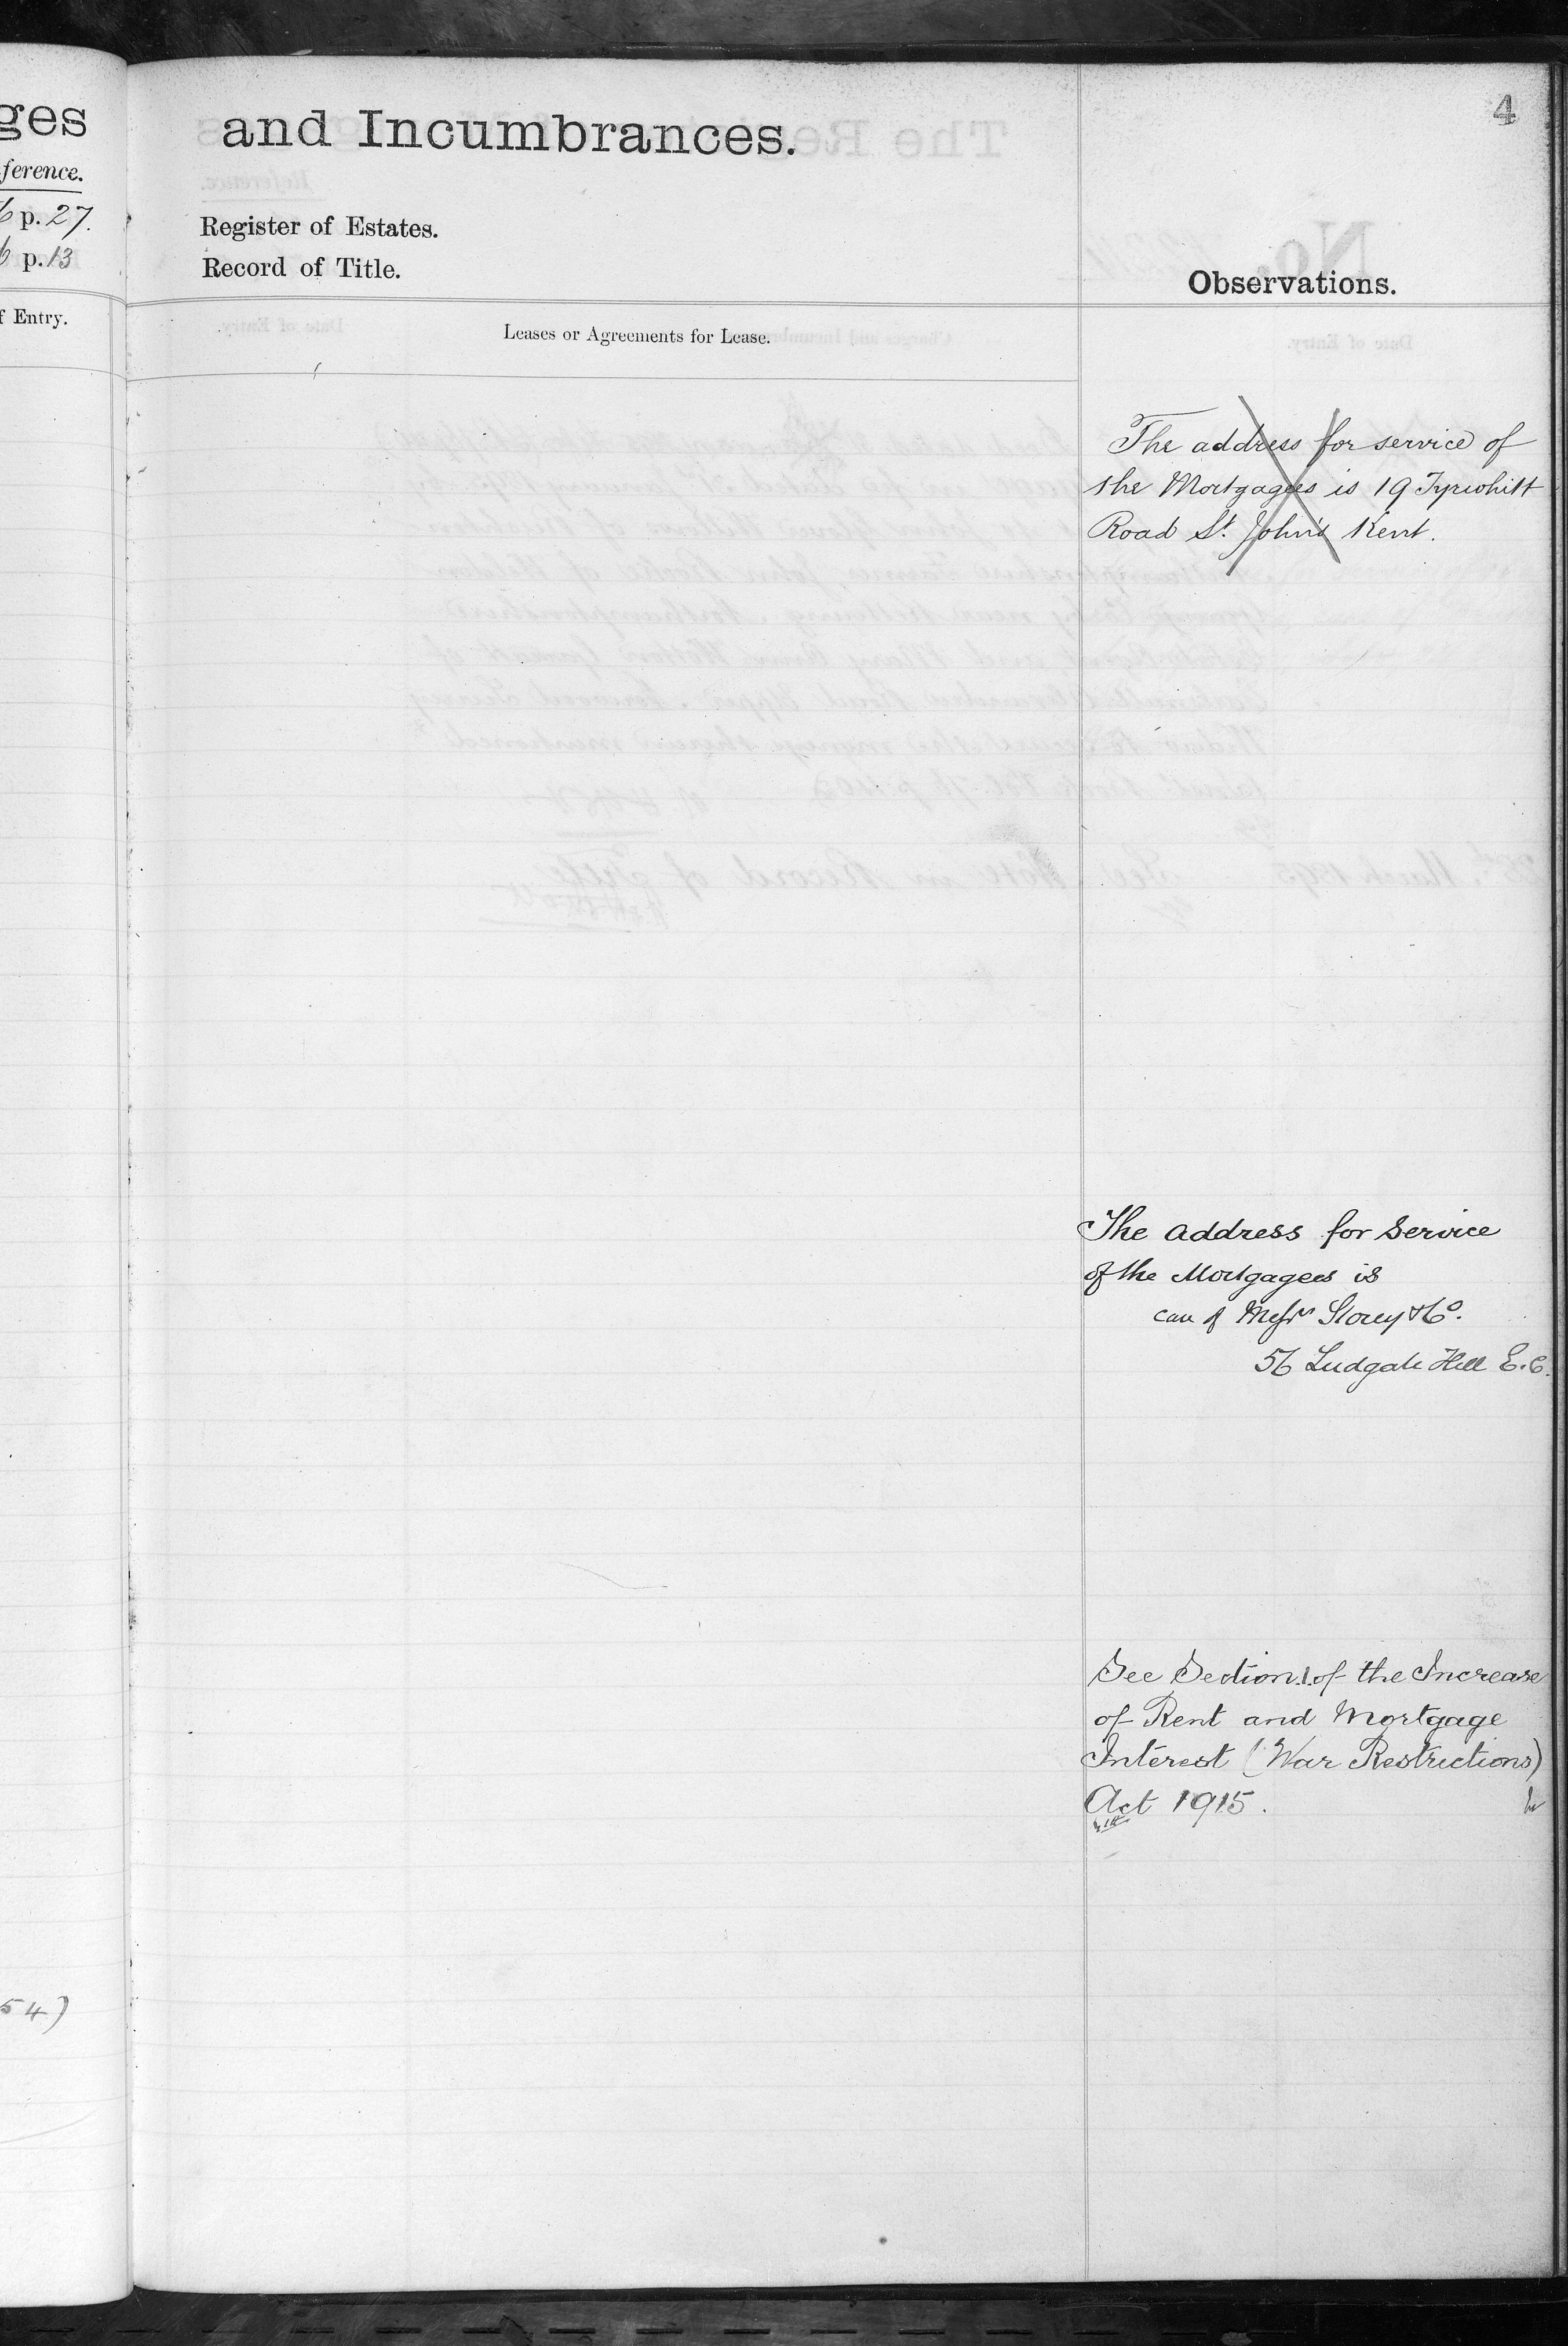 ges
ference.
p. 27.
p. 13
f Entry.
54)
4
and Incumbrances.
Register of Estates.
Record of Title.
Observations.
Leases or Agreements for Lease.
The address for service of
the Mortgagees is 19 Tyrwhitt
Road St. John's Kent.
The address for Service
of the Mortgagees is
care of Messrs Storey & Co.
56 Ludgate Hill E.C.
See Section 1 of the Increase
of Rent and Mortgage
Interest (War Restrictions)
Act 1915.